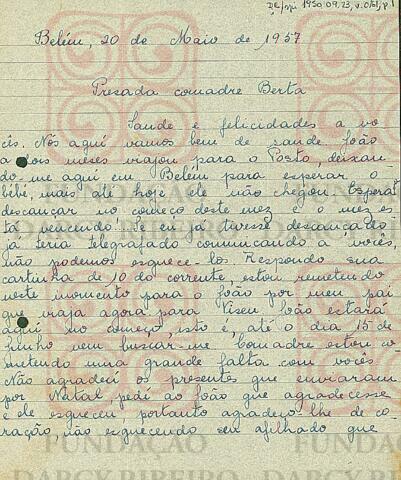 DR/spi 1950.09.23, v.01/51, p.1
Belém, 20 de Maio de 1957
Presada comadre Berta
Saude e felicidades a vo
cês. Nós aqui vamos bem de saude João
a dois meses viajou para o Posto, deixan
do me aqui em Belém para esperar o
bêbê, mais até hoje ele não chegou. Esperei
descançar no começo deste mez e o mez es
tá vencendo! Se eu já tivesse descançado
já teria telegrafado comunicando a vocês,
não podemos esquece-los. Respondo sua
cartinha de 10 do corrente, estou remetendo
neste momento para o João por meu pai
que viaja agora para Viseu João estará
aqui no começo, isto é, até o dia 15 de
Junho vem buscar-me. Comadre estou co
metendo uma grande falta com vocês
Não agradeci os presentes que enviaram
por Natal, pedi ao João que agradecesse
e ele esqueceu portanto agradeço-lhe de co-
ração, não esquecendo seu afilhado que
FUNDAÇÃO
DARCY RIBEIRO